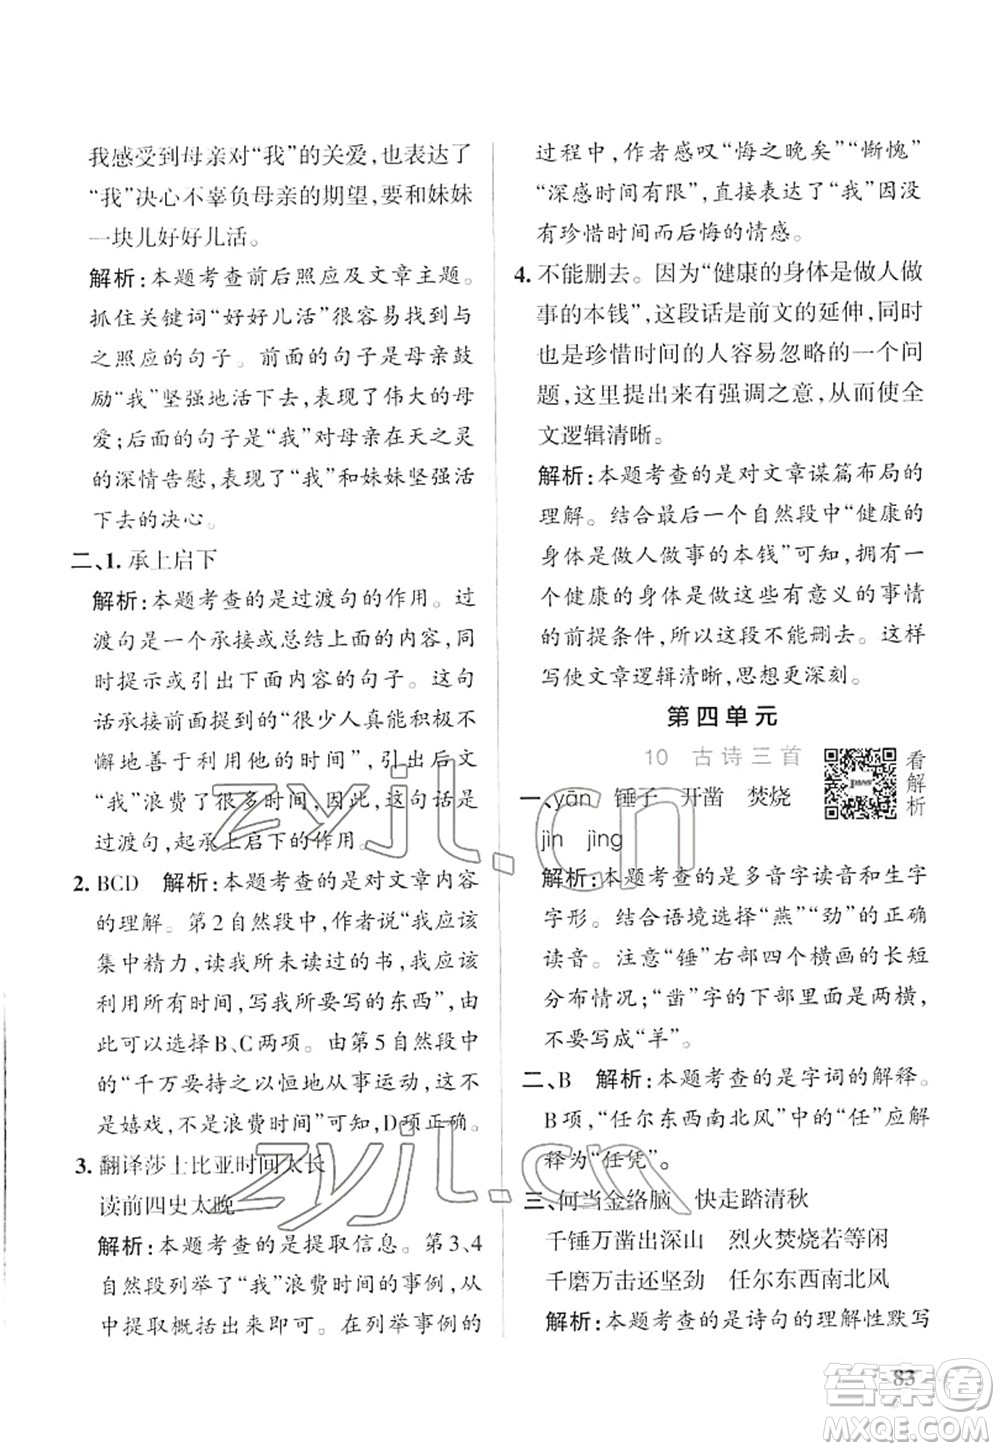 我感受到母亲对“我”的关爱,也表达了
“我”决心不辜负母亲的期望,要和妹妹
一块儿好好儿活。
解析:本题考查前后照应及文章主题。
抓住关键词“好好儿活”很容易找到与
之照应的句子。前面的句子是母亲鼓
励“我”坚强地活下去,表达了伟大的母
爱;后面的句子是“我”对母亲在天之灵
的深情告慰,体现了“我”和妹妹坚强活
下去的决心。
二、1.承上启下
解析:本题考查的是过渡句的作用。过
渡句是一个承接或总结上面的内容,同
时提示或引出下面内容的句子。这句
话承接前面提到的“很少人真能积极不
懈地善用他们的时间”,并引出下文
“我”浪费了很多时间,所以这句话是
过渡句,起承上启下的作用。
2.BCD 解析:本题考查的是对文章内容
的理解。第2自然段中,作者说“我应该
集中精力,读我所未读过的书,我应该
利用所有时间,写我所要写的东西”,由
此可以选择B、C两项。第5自然段中
的“千万要持之以恒地从事运动,这不
是嬉戏,不是浪费时间”可知,D项正确。
3.翻译莎士比亚时间太长
读前四史太晚
解析:本题考查的是提取信息。第3、4
自然段列举了“我”浪费时间的事例,从
中提取概括出来即可。在列举事例的
过程中,作者感叹“悔之晚矣”“惭愧”
“深感时间有限”,直接表达了“我”因没
有珍惜时间而后悔的情感。
4.不能删去。因为“健康的身体是做人做
事的本钱”,这段话是前文的延伸,同时
也是珍惜时间的人容易忽略的一个问
题,这里提出来有强调之意,从而使全
文逻辑清晰。
解析:本题考查的是对文章谋篇布局的
理解。结合最后一个自然段中“健康的
身体是做人做事的本钱”可知,拥有一
个健康的身体是做这些有意义的事情
的前提条件,所以这段不能删去。这样
写使文章逻辑清晰,思想更深刻。
第四单元
10 古诗三首
看解析
一、yān 锤子 开凿 焚烧
jìn jìng
解析:本题考查的是多音字读音和生字
字形。结合语境选择“燕”“劲”的正确
读音。注意“锤”右部四个横画的长短
分布情况;“凿”字的下部里面是两横,
不要写成“羊”。
二、B 解析:本题考查的是字词的解释。
B项,“任尔东西南北风”中的“任”应解
释为“任凭”。
三、何当金络脑 快走踏清秋
千锤万凿出深山 烈火焚烧若等闲
千磨万击还坚劲 任尔东西南北风
解析:本题考查的是诗句的理解性默写
83
zyjl.cn
zyjl.cn
答案圈
MXQE.COM